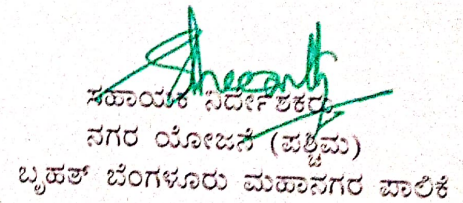 ಸಹಾಯಕ ನಿರ್ದೇಶಕರು
ನಗರ ಯೋಜನೆ (ಪಶ್ಚಿಮ)
ಬೃಹತ್ ಬೆಂಗಳೂರು ಮಹಾನಗರ ಪಾಲಿಕೆ